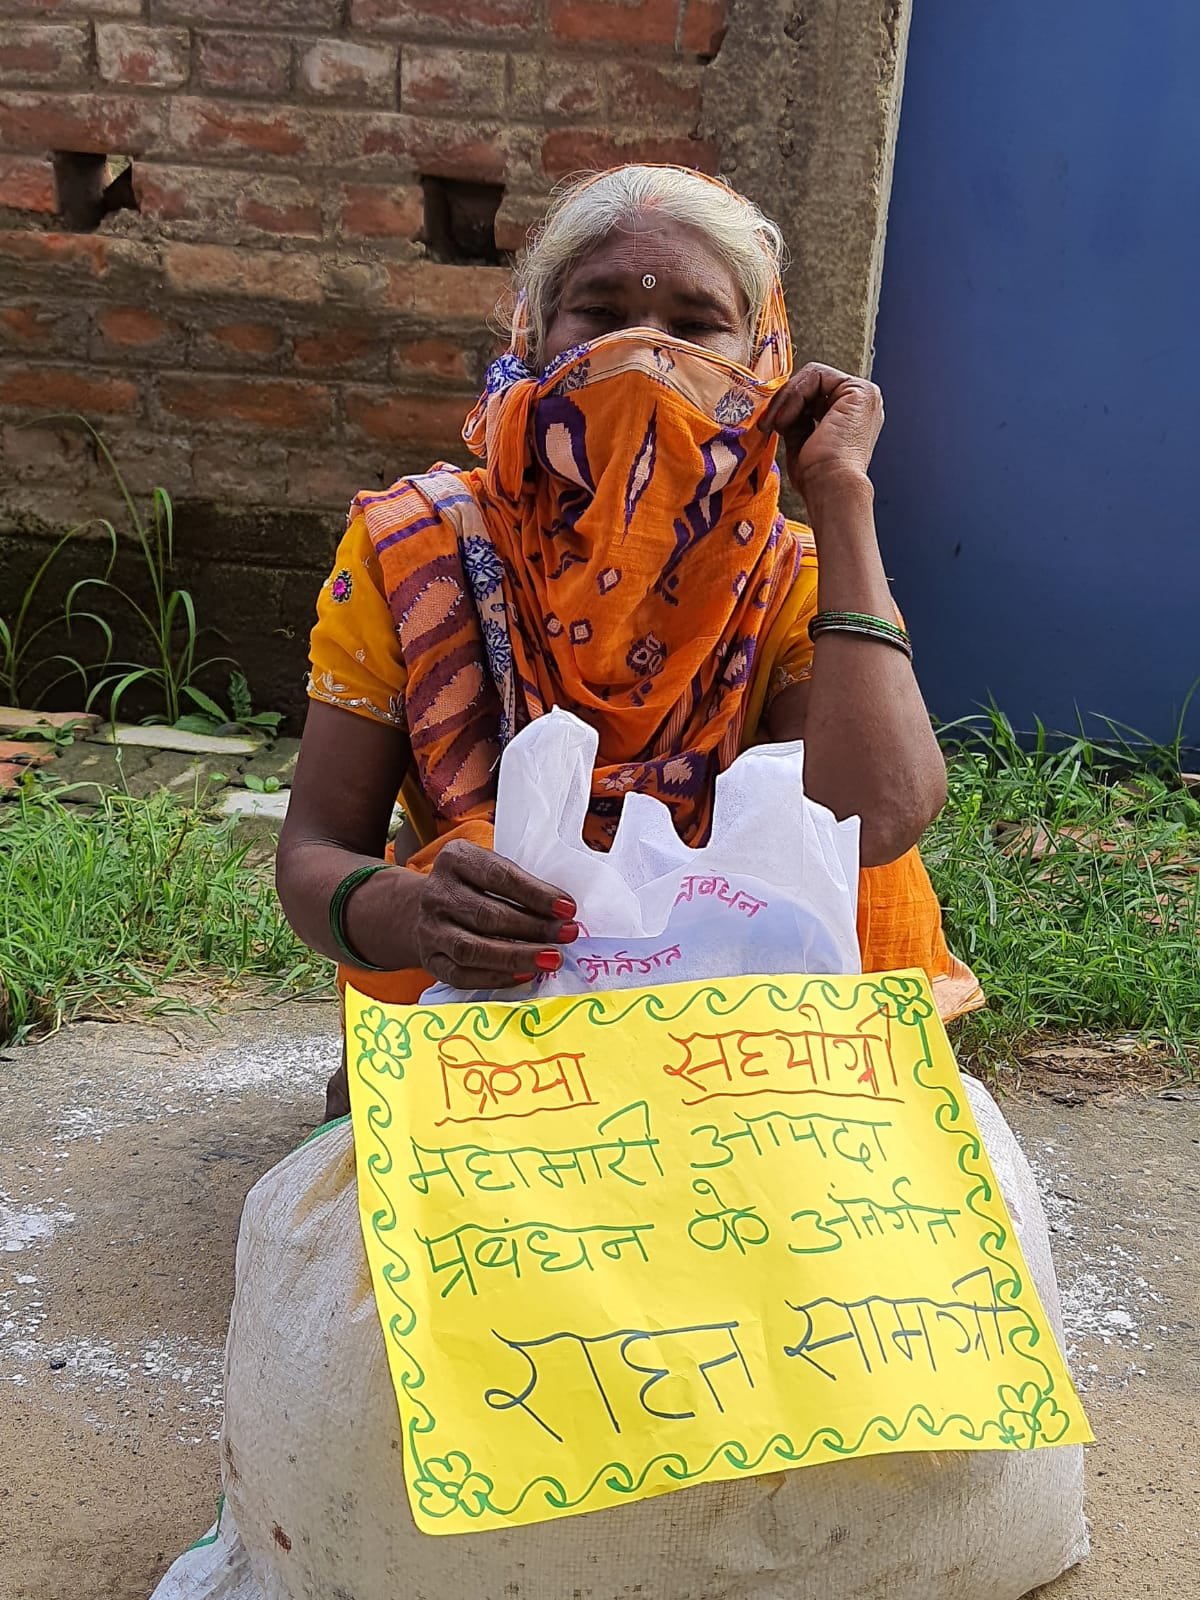 प्रबंधन
अंर्तगत
क्रिया सहयोग्री
महामारी आपदा
प्रबंधन के अंतर्गत
राहत सामग्री